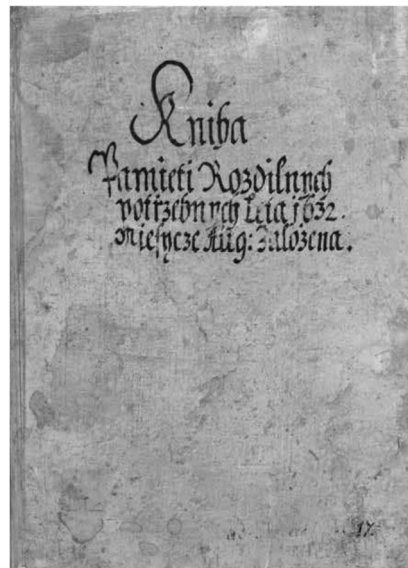 Kniha
Pamieti Rozdilnych
potrzebnych Leta 1632.
Miesycze Aug: Založena.
17.